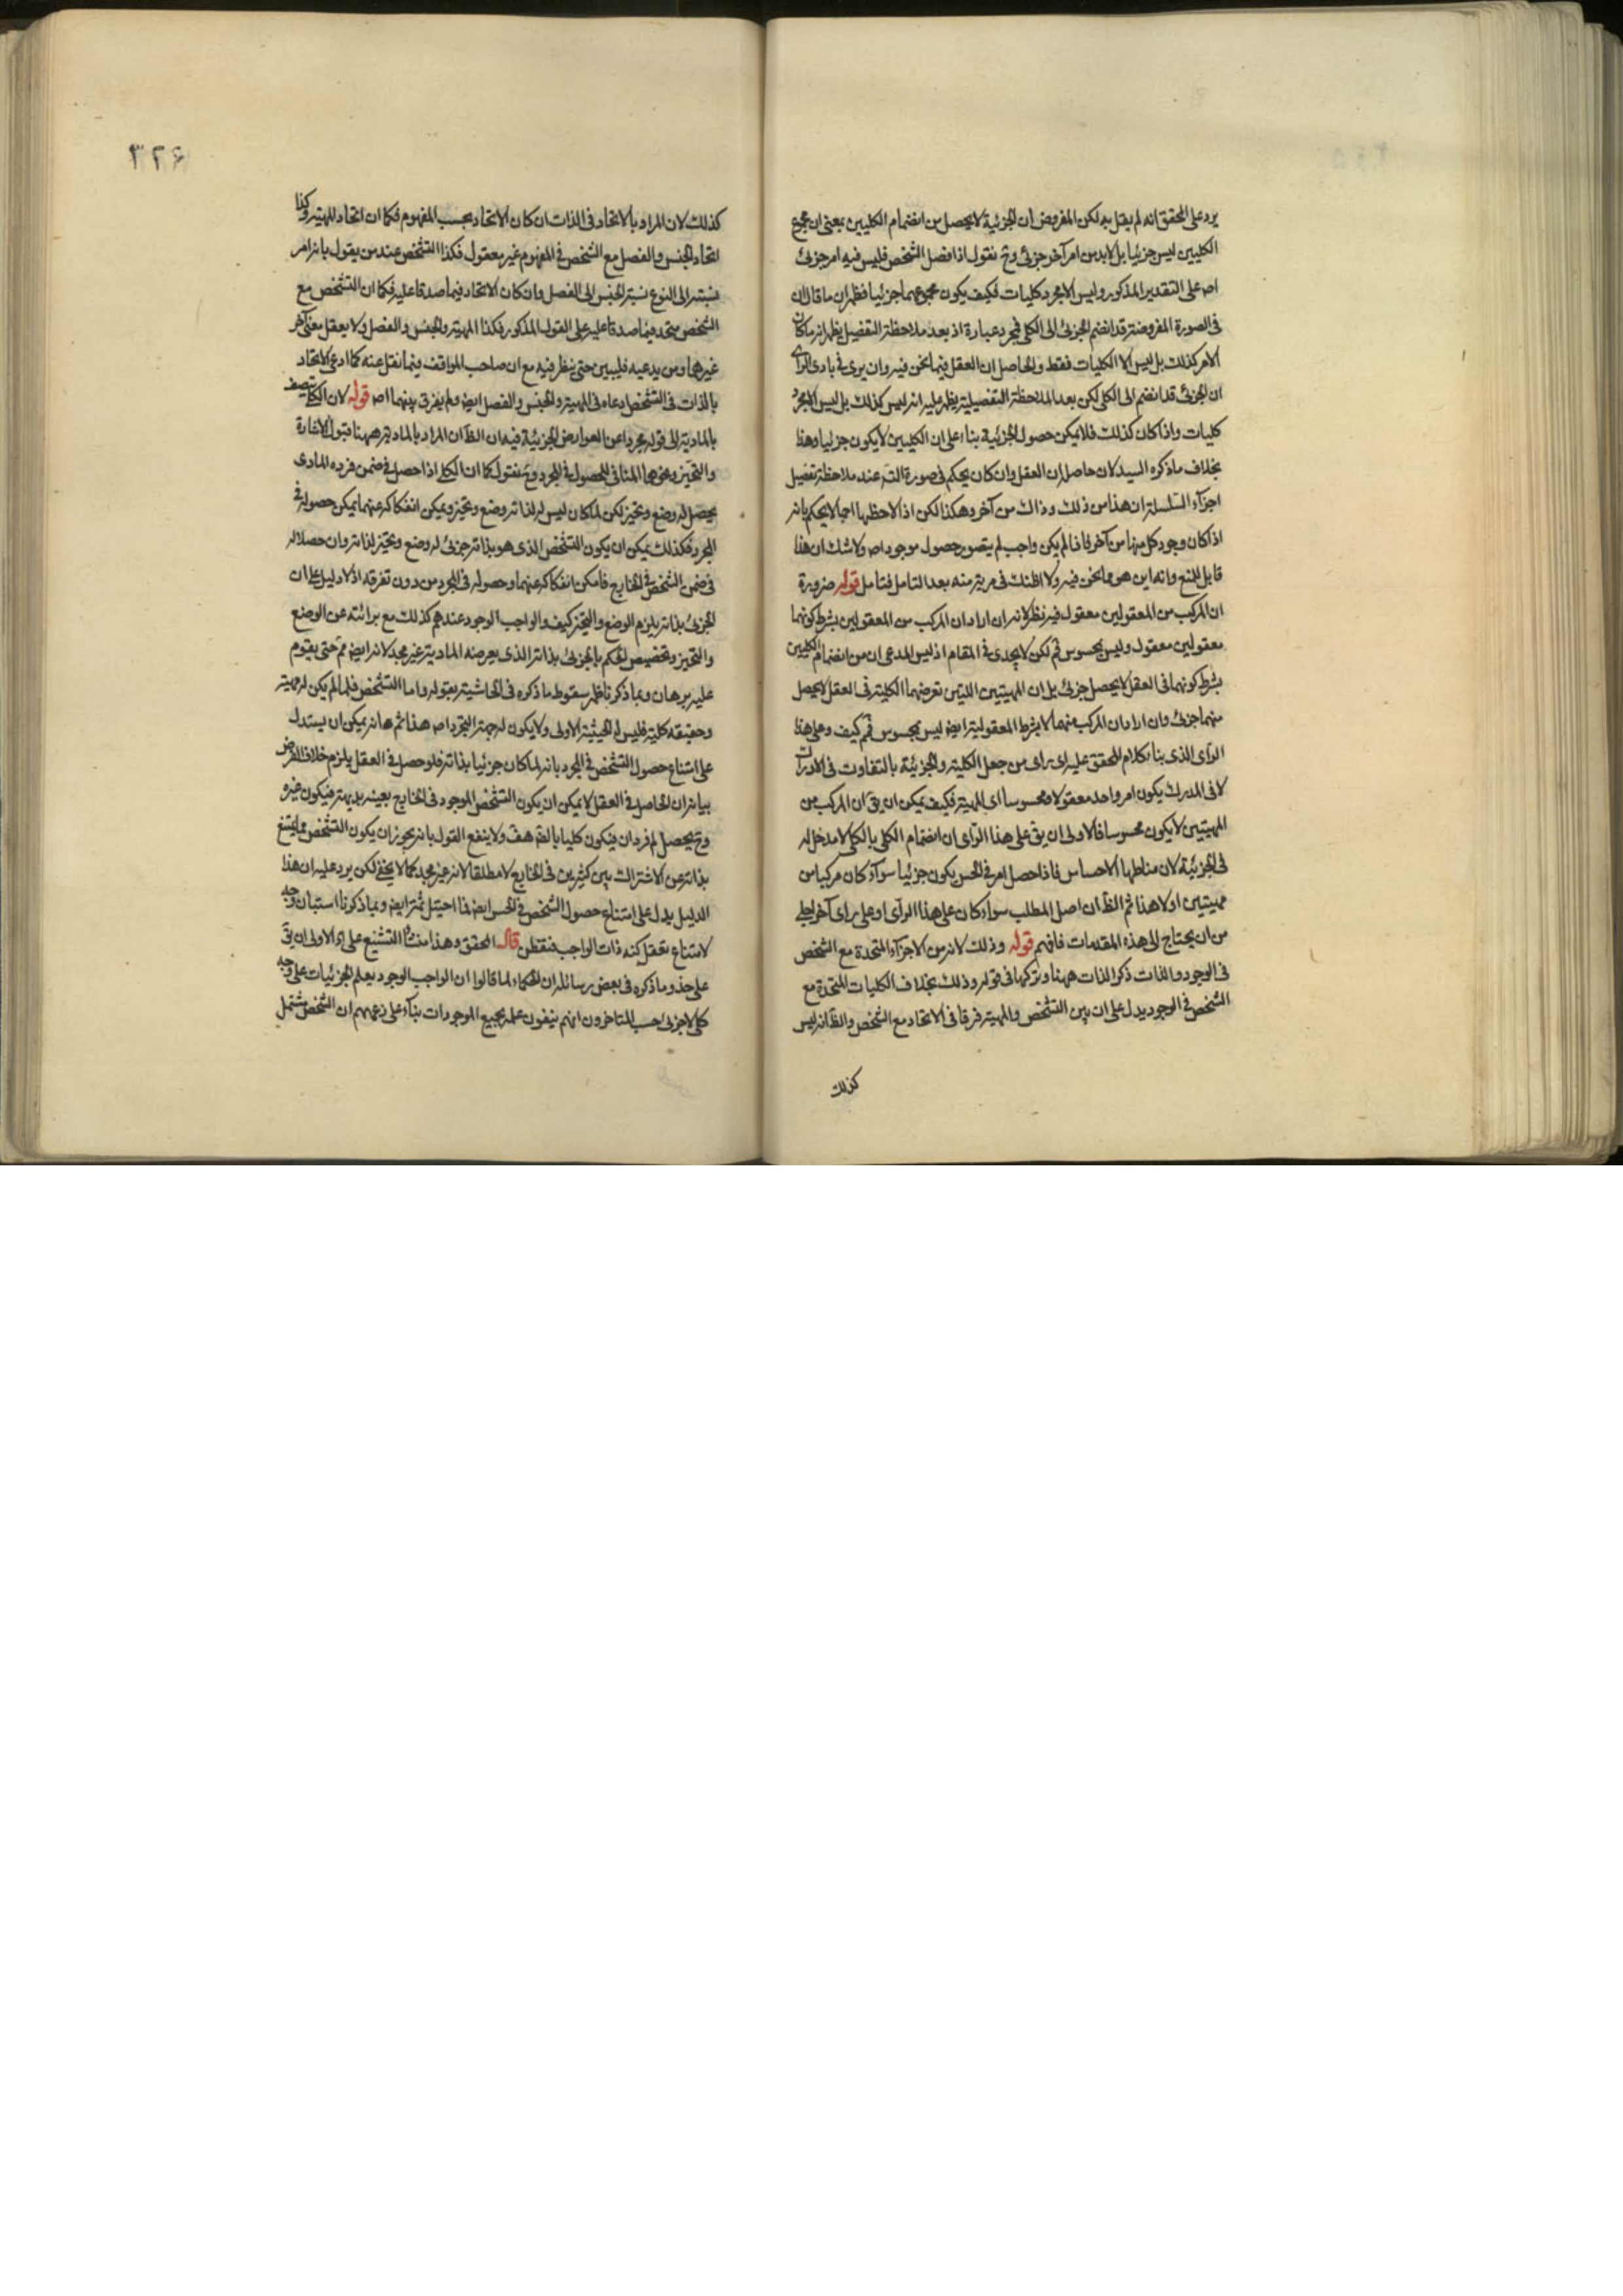 يرد على المحقق انه لم يقل به لكن المفروض ان الجزئية لا يحصل من انضمام الكليين بمعنى ان مجموع
الكليين ليس جزئيا بل لابد من امر آخر جزئى وح نقول اذا فصل الشخص فليس فيه امر جزئى
اصه على التقدير المذكور وليس الا مجرد كليات فكيف يكون مجموعهما جزئيا فظهر ان ما قال ان
فى الصورة المفروضة قد انضم الجزئى الى الكلى مجرد عبارة اذ بعد ملاحظة التفصيل يظهر انه ما كان
الامر كذلك بل ليس الا الكليات فقط والحاصل ان العقل فيما نحن فيه وان يرى فى بادى الراى
ان الجزئى قد انضم الى الكلى لكن بعد الملاحظة التفصيلية يظهر عليه انه ليس كذلك بل ليس الا مجرد
كليات واذا كان كذلك فلا يمكن حصول الجزئية بناء على ان الكليين لا يكون جزئيا وهذا
بخلاف ما ذكره السيد لان حاصله ان العقل وان كان يحكم فى صورة التسه عند ملاحظة تفصيل
اجزآء السلسلة ان هذا من ذلك وذاك من آخر وهكذا لكن اذا لاحظها اجمالا يحكم بانه
اذا كان وجود كل منها من آخر فاذا لم يكن واجب لم يتصور حصول موجود اصه ولا شك ان هذا
قابل للمنع وانه اين هو مما نحن فيه ولا اظنك فى مرية منه بعد التامل فتامل قوله ضرورة
ان المركب من المعقولين معقول فيه نظر لانه ان اراد ان المركب من المعقولين بشرط كونهما
معقولين معقول وليس بمحسوس فم لكن لا يجدى فى المقام اذ ليس المدعى ان من انضمام الكليين
بشرط كونهما فى العقل لا يحصل جزئى بل ان المهيتين اللتين تعرضهما الكلية فى العقل لا يحصل
منهما جزئى وان اراد ان المركب منهما لا بشرط المعقولية ايض ليس بمحسوس فم كيف وعلى هذا
الرآى الذى بناء كلام المحقق عليه اى راى من جعل الكلية والجزئية بالتفاوت فى الادراك
لا فى المدرك يكون امر واحد معقولا ومحسوسا اى المهية فكيف يمكن ان يق ان المركب من
المهيتين لا يكون محسوسا فالاولى ان يق على هذا الرآى ان انضمام الكلى بالكلى لا مدخل له
فى الجزئية لان مناطها الاحساس فاذا حصل امر فى الحس يكون جزئيا سوآء كان مركبا من
مهيتين اولا هذا ثم الظ ان اصل المطلب سواء كان على هذا الرآى او على راى آخر اجلى
من ان يحتاج الى هذه المقدمات فافهم قوله وذلك لانه من الاجزآء المتحدة مع الشخص
فى الوجود والذات ذكر الذات ههنا وتركها فى قوله وذلك بخلاف الكليات المتحدة مع
الشخص فى الوجود يدل على ان بين التشخص والمهية فرقا فى الاتحاد مع الشخص والظ انه ليس
كذلك
٣٢۶
كذلك لان المراد بالاتحاد فى الذات ان كان الاتحاد بحسب المفهوم فكما ان اتحاد المهية وكذا
اتحاد الجنس والفصل مع الشخص فى المفهوم غير معقول فكذا التشخص عند من يقول بانه امر
نسبته الى النوع نسبة الجنس الى الفصل وان كان الاتحاد فيما صدقا عليه فكما ان التشخص مع
الشخص متحد فيما صدقا عليه على القول المذكور فكذا المهية والجنس والفصل ولا يعقل معنى آخر
غيرهما ومن يدعيه فليبين حتى ينظر فيه مع ان صاحب المواقف فيما نقل عنه كما ادعى الاتحاد
بالذات فى التشخص ادعاه فى المهية والجنس والفصل ايض ولم يفرق بينهما اصه قوله لان الكلى يتصف
بالمادية الى قوله مجردا عن العوارض الجزئية فيه ان الظ ان المراد بالمادية ههنا قبول الاشارة
والتحيز ونحوها المنافى للحصول فى المجرد وح فنقول كما ان الكلى اذا حصل فى ضمن فرده المادى
يحصل له وضع وتحيز لكن لما كان ليس له لذاته وضع وتحيز ويمكن انفكاكه عنهما يمكن حصوله فى
المجرد فكذلك يمكن ان يكون التشخص الذى هو بذاته جزئى له وضع وتحيز لذاته وان حصلا له
فى ضمن الشخص فى الخارج فامكن انفكاكه عنهما وحصوله فى المجرد من دون تفرقة اذ لا دليل على ان
الجزئى بذاته يلزم الوضع والتحيز كيف والواجب الوجود عندهم كذلك مع برائته عن الوضع
والتحيز وتخصيص الحكم بالجزئى بذاته الذى يعرضه المادية غير مجد لانه ايض مم حتى يقوم
عليه برهان وبما ذكرنا ظهر سقوط ما ذكره فى الحاشية بقوله واما التشخص فلما لم يكن له مهية
وحقيقة كلية فليس له الحيثية الاولى ولا يكون له جهة التجرد اصه هذا ثم ها انه يمكن ان يستدل
على امتناع حصول التشخص فى المجرد بانه لما كان جزئيا بذاته فلو حصل فى العقل يلزم خلاف الفرض
بيانه ان الحاصل فى العقل لا يمكن ان يكون التشخص الموجود فى الخارج بعينه بديهة فيكون غيره
وح يحصل له فردان فيكون كليا بالفم هف ولا ينفع القول بانه يجوز ان يكون التشخص مما يمتنع
بذاته عن الاشتراك بين كثيرين فى الخارج لا مطلقا لانه غير مجد كما لا يخفى لكن يرد عليه ان هذا
الدليل يدل على امتناع حصول الشخص فى الحس ايض فما احيتل ثمة ايض وبما ذكرنا استبان وجه
لامتناع تعقل كنه ذات الواجب فتفطن قال المحقق وهذا منشأ التشنيع على اه الاولى ان يق
على حذو ما ذكره فى بعض رسائله ان الحكماء لما قالوا ان الواجب الوجود يعلم الجزئيات على وجه
كلى لا جزئى حسب المتاخرون انهم ينفون علمه بجميع الموجودات بنآء على زعمهم ان الشخص مشتمل